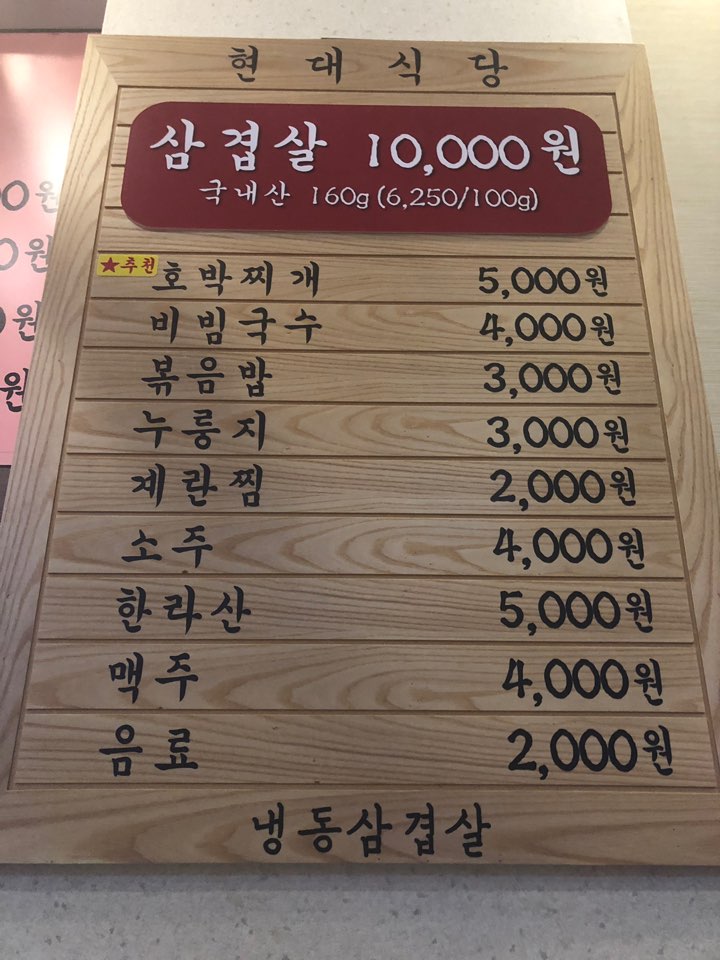 현대식당
삼겹살 10,000원
국내산 160g (6,250/100g)
★추천 호박찌개 5,000원
비빔국수 4,000원
볶음밥 3,000원
누룽지 3,000원
계란찜 2,000원
소주 4,000원
한라산 5,000원
맥주 4,000원
음료 2,000원
냉동삼겹살
0원
0원
0원
원